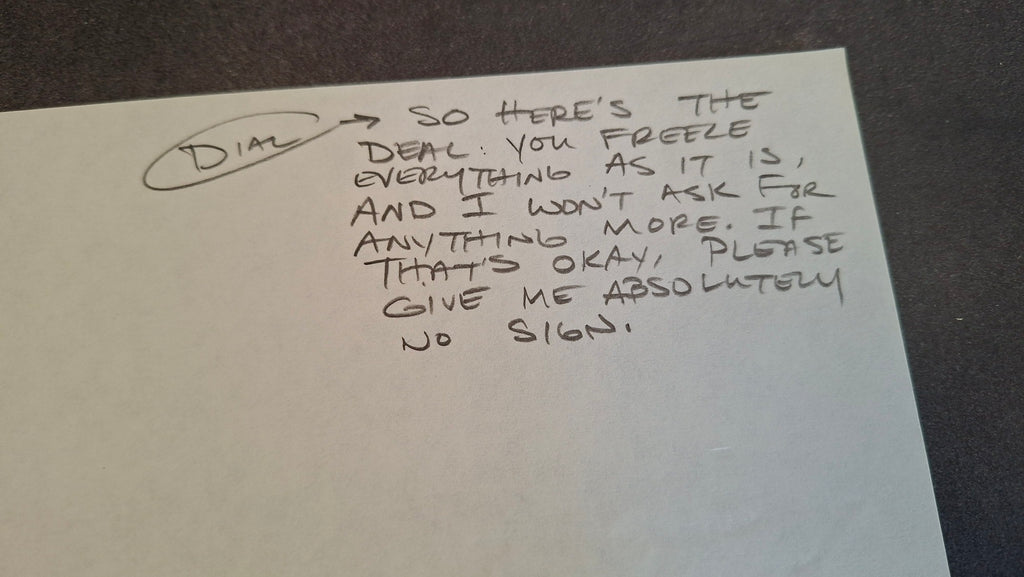 DIAL → SO HERE'S THE
DEAL: YOU FREEZE
EVERYTHING AS IT IS,
AND I WON'T ASK FOR
ANYTHING MORE. IF
THAT'S OKAY, PLEASE
GIVE ME ABSOLUTELY
NO SIGN.